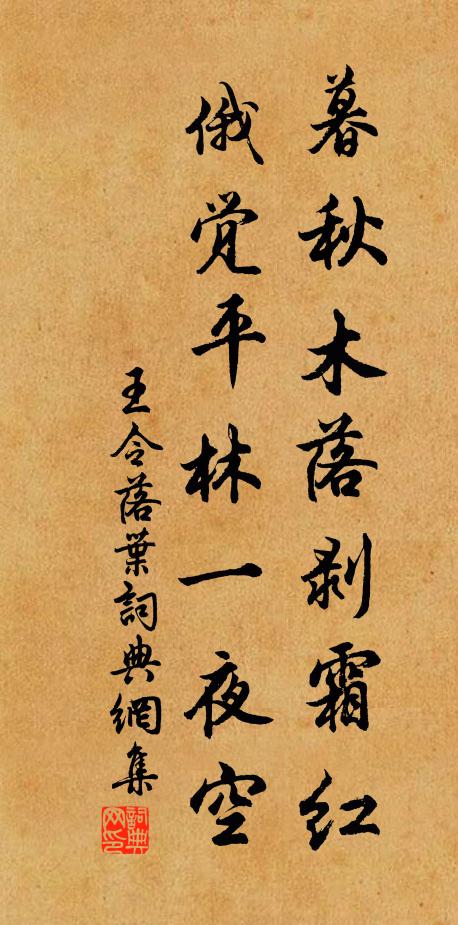 暮秋木落剥霜红
俄觉平林一夜空
王令落葉詞典網集
詞典网印